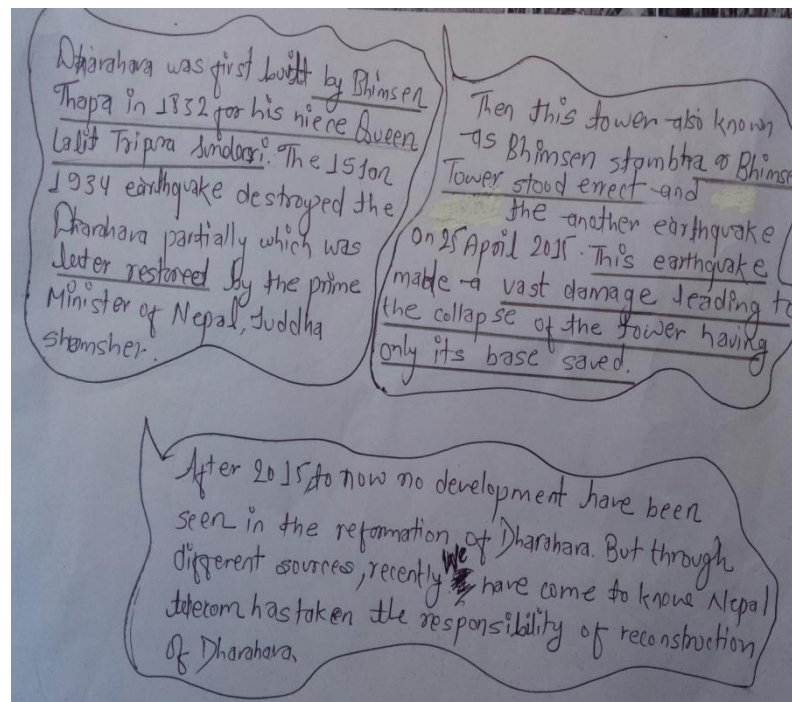 Dharahara was first built by Bhimsen
Thapa in 1832 for his niene Queen
Lalit Tripra Sundari. The 15 Jan
1934 earthquake destroyed the
Dharahara partially which was
later restored by the prime
Minister of Nepal, Juddha
shamsher.
Then this tower also known
as Bhimsen stambha or Bhimse
Tower stood errect and
the another earthquake
on 25 April 2015. This earthquake
made a vast damage leading to
the collapse of the tower having
only its base saved.
After 2015 to now no development have been
seen in the reformation of Dharahara. But through
different sources, recently We have come to know Nepal
telecom has taken the responsibility of reconstruction
of Dharahara.